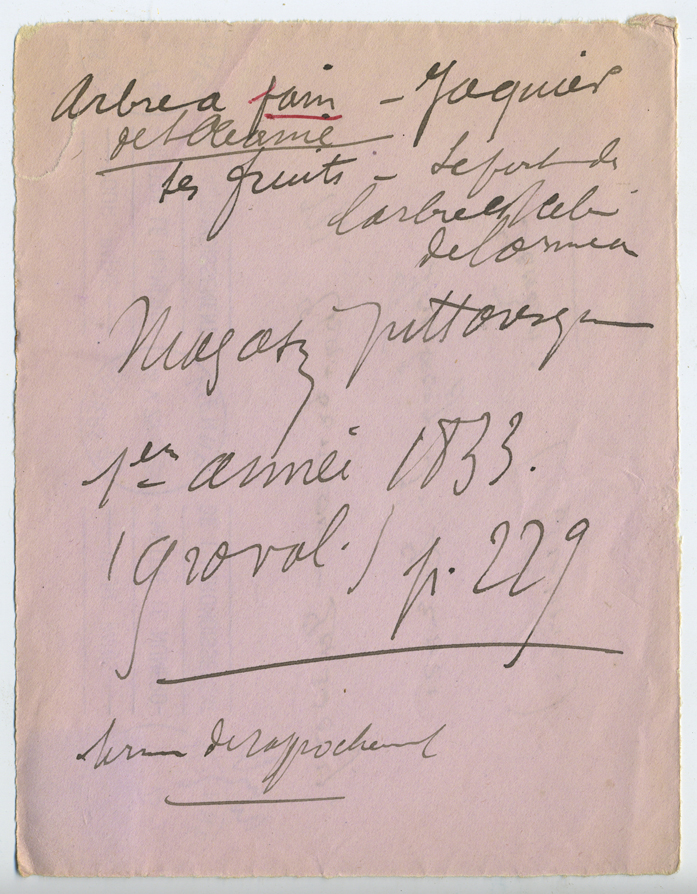 Arbre a pain – Jaquier
de l'Oceanie
Les fruits – Le port de
l'arbre est celui
de l'ormeau
Magasz pittoresque
1ere année 1833.
(gro vol.) p. 229
terme de rapprochement